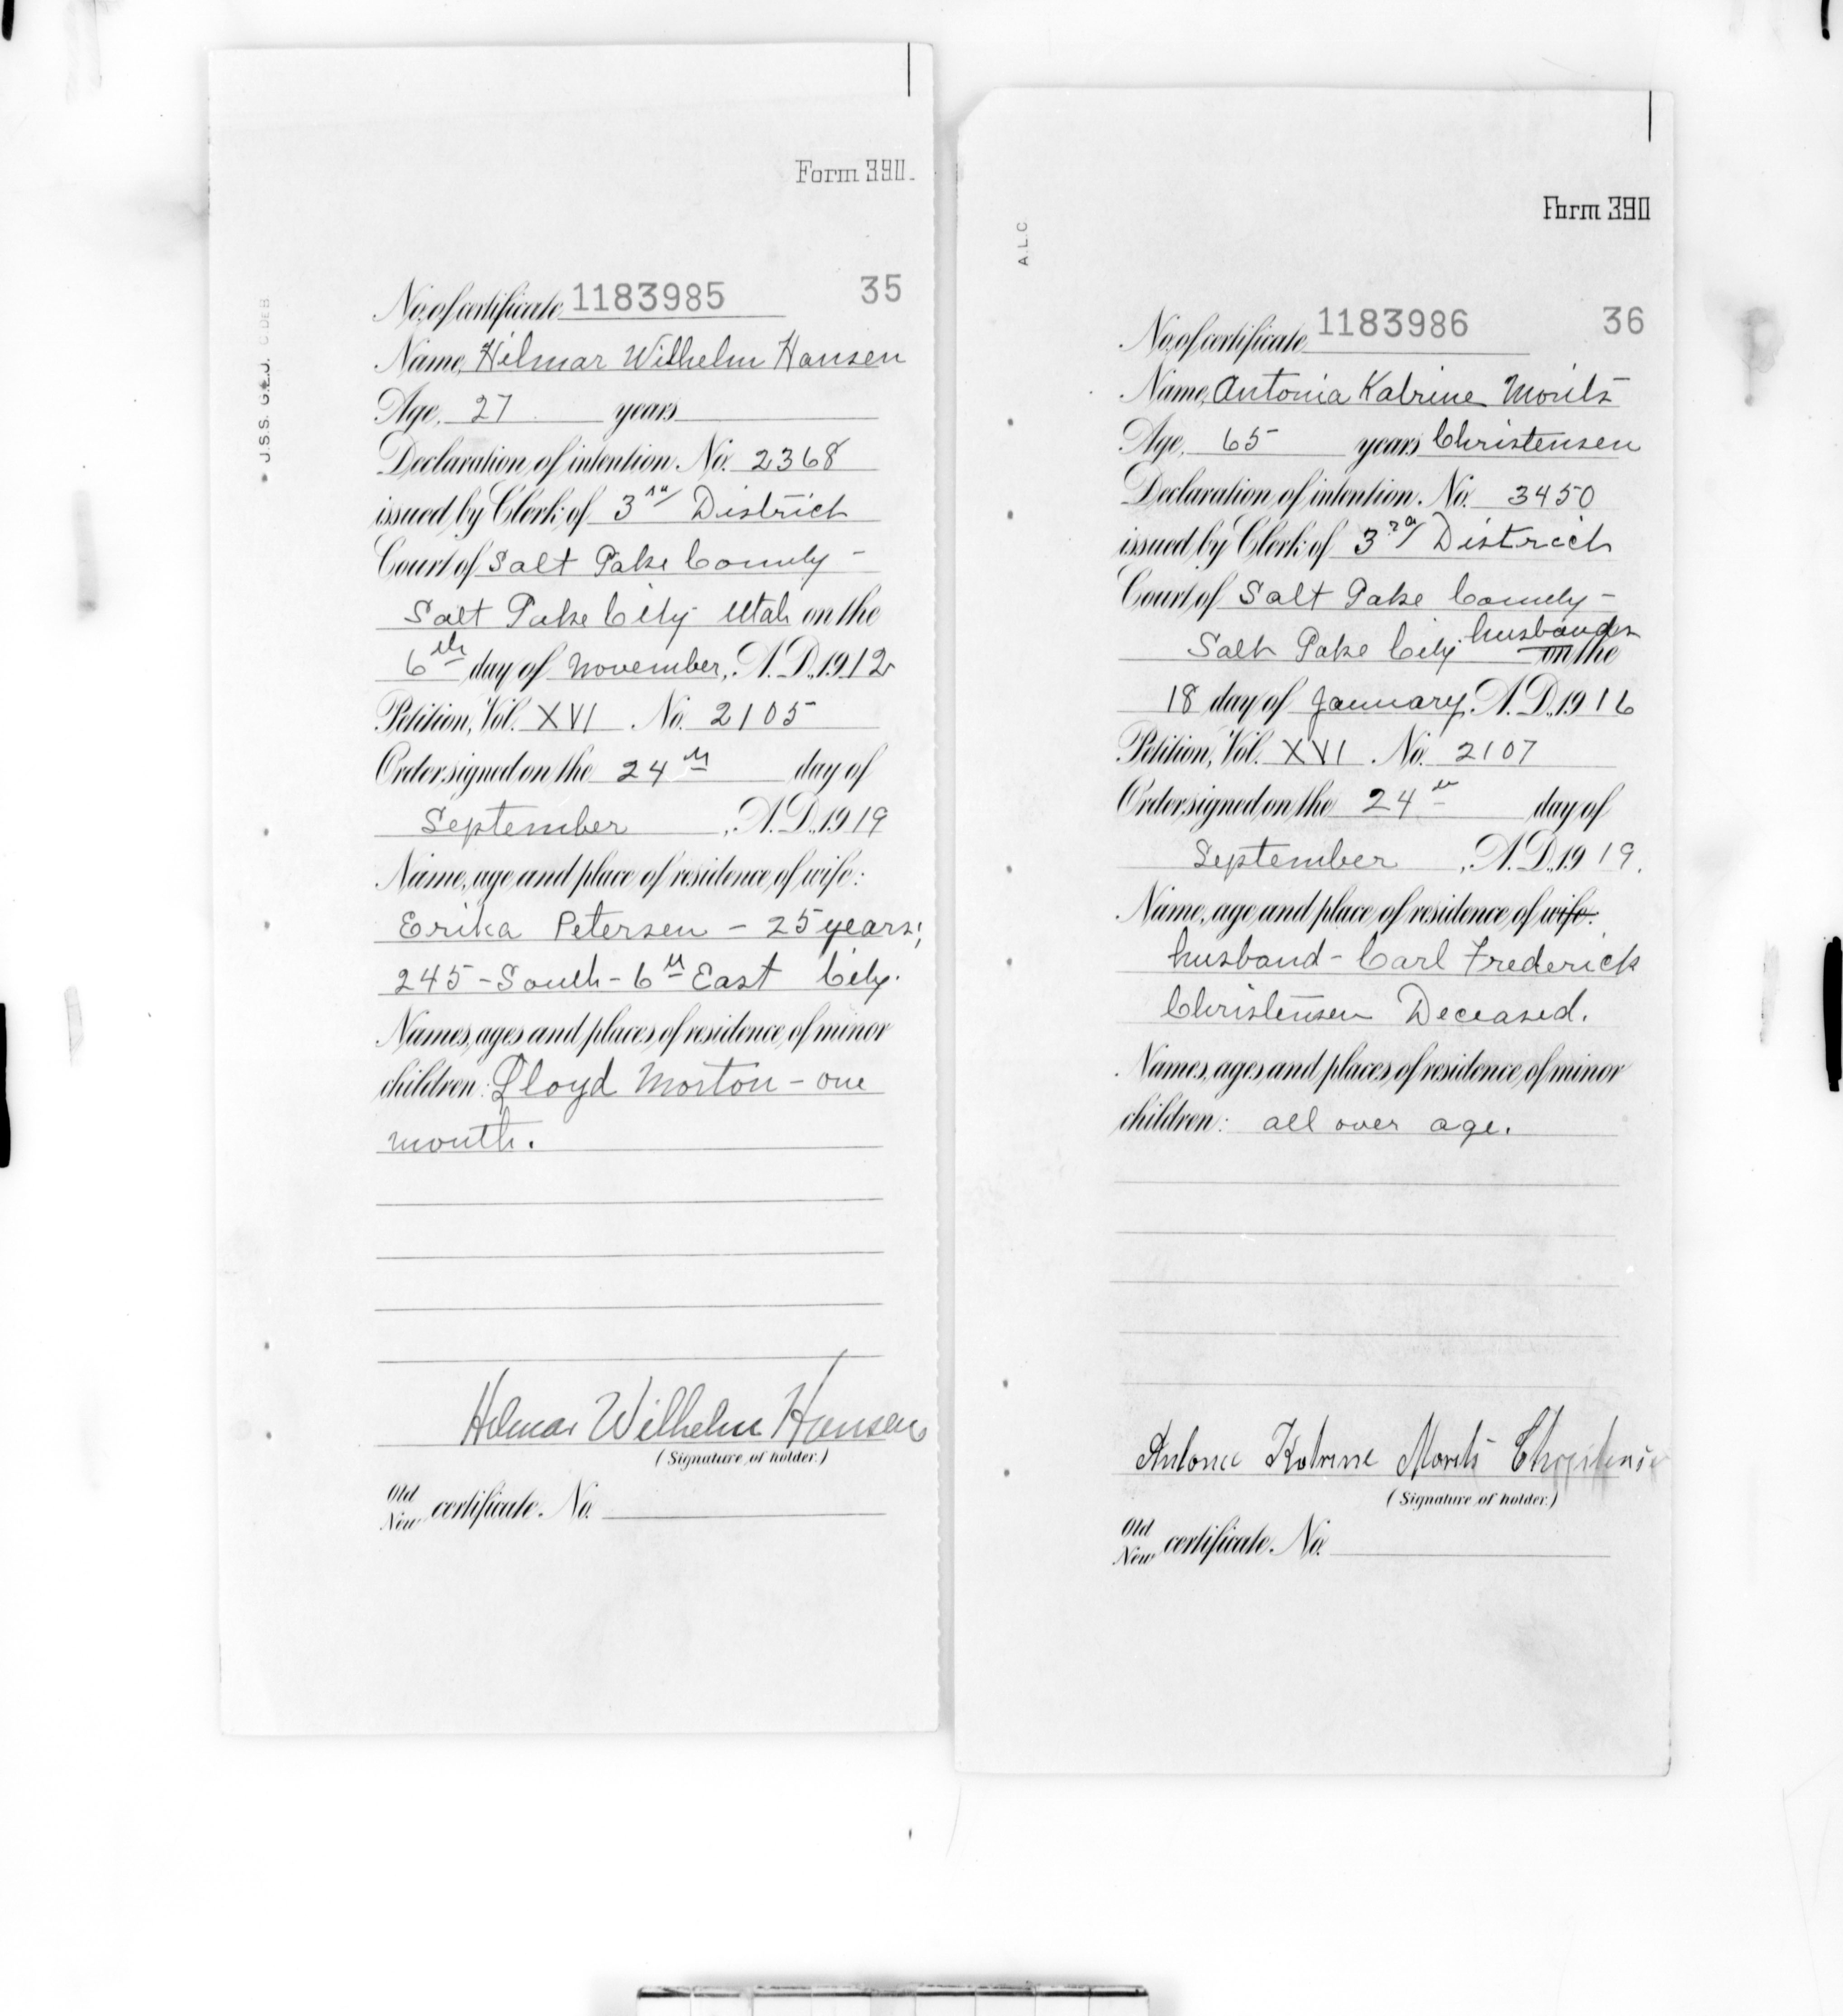 Form 390.
J.S.S. G.E.J. C.DEB.
No. of certificate 1183985 35
Name, Hilmar Wilhelm Hansen
Age, 27 years
Declaration of intention No. 2368
issued by Clerk of 3rd District
Court of Salt Lake County -
Salt Lake City Utah on the
6th day of November, A. D., 1912
Petition, Vol. XVI No. 2105
Order signed on the 24th day of
September, A. D., 1919
Name, age and place of residence of wife:
Erika Petersen - 25 years;
245 - South - 6th East City.
Names, ages and places of residence of minor
children: Lloyd Morton - one
month.
Hilmar Wilhelm Hansen
(Signature of holder.)
Old
New certificate. No.
Form 390
A.L.C.
No. of certificate 1183986 36
Name, Antonia Katrine Morits
Age, 65 years Christensen
Declaration of intention. No. 3450
issued by Clerk of 3rd District
Court of Salt Lake County -
Salt Lake City husbands on the
18 day of January, A. D., 1916
Petition, Vol. XVI No. 2107
Order signed on the 24th day of
September, A. D., 1919.
Name, age and place of residence of wife:
husband - Carl Frederick
Christensen Deceased.
Names, ages and places of residence of minor
children: all over age.
Antonie Katrine Morits Christensen
(Signature of holder.)
Old
New certificate. No.